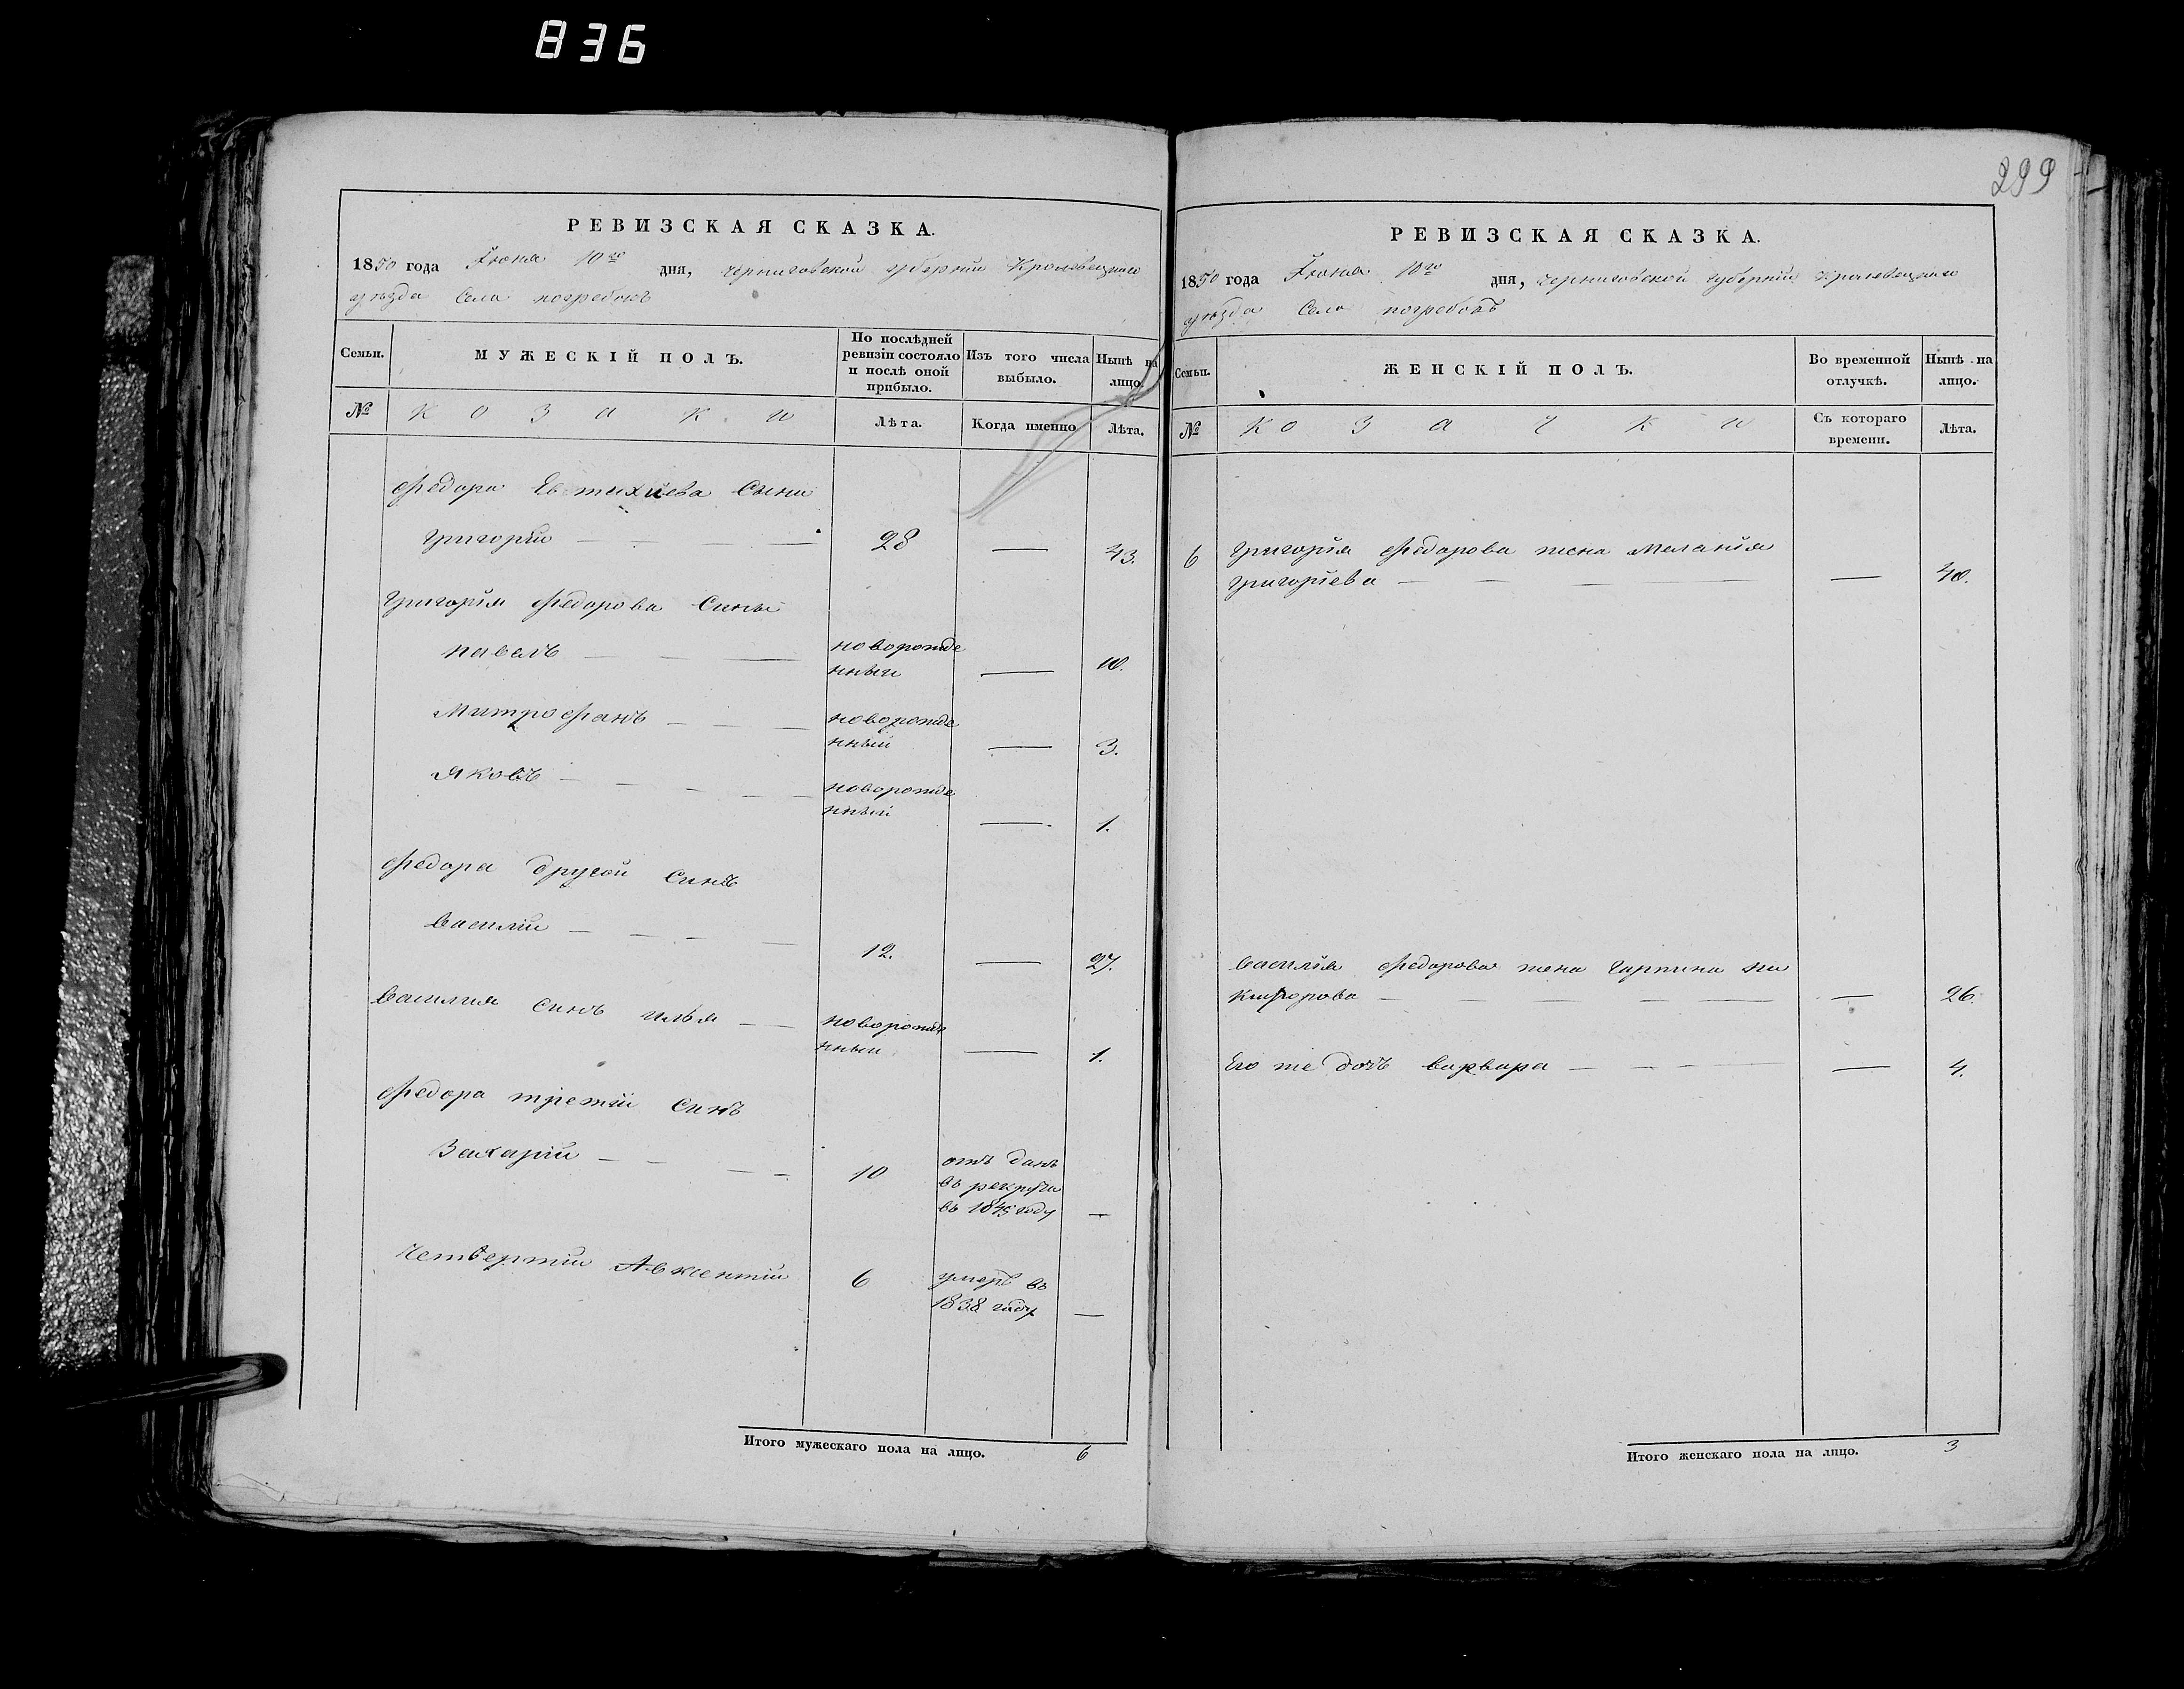 836
299
РЕВИЗСКАЯ СКАЗКА.
1850 года Іюня 10го дня, Черниговской губерніи Кролевецкаго
уѣзда Села погребокъ
Семьи. МУЖЕСКІЙ ПОЛЪ. По послѣдней ревизіи состояло и послѣ оной прибыло. Изъ того числа выбыло. Нынѣ на лицо.
№ Козаки Лѣта. Когда именно Лѣта.
Федора Евтихіева Сыни
григорій 28 — 43.
григорія Федорова Сины
павелъ новорожде
нный — 10.
Митрофанъ новорожде
нный — 3.
Яковъ новорожде
нный — 1.
Федора другой Синъ
василій 12. — 27.
василия Синъ илья новорожде
нный — 1.
Федора третій Синъ
Захарій 10 отъ данъ
въ рекруты
въ 1845 году —
Четвертій Авксентій 6 умеръ въ
1838 году —
Итого мужескаго пола на лицо. 6
РЕВИЗСКАЯ СКАЗКА.
1850 года Іюня 10го дня, Черниговской губерніи Кролевецкаго
уѣзда Села погребокъ
Семьи. ЖЕНСКІЙ ПОЛЪ. Во временной отлучкѣ. Нынѣ на лицо.
№ Козачки Съ котораго времени. Лѣта.
6 григорія Федорова жена Меланія
григоріева — 40.
василія Федорова жена гарпина ни
кифорова — 26.
Его же дочь варвара — 4.
Итого женскаго пола на лицо. 3